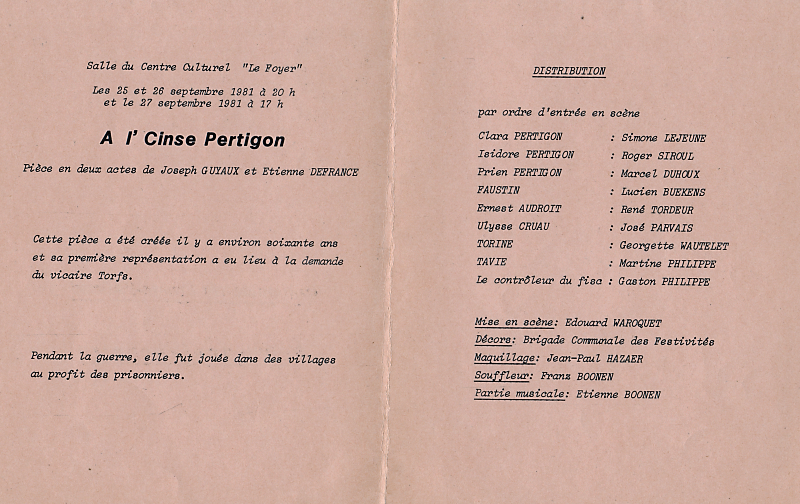 Salle du Centre Culturel "Le Foyer"
Les 25 et 26 septembre 1981 à 20 h
et le 27 septembre 1981 à 17 h
A l' Cinse Pertigon
Pièce en deux actes de Joseph GUYAUX et Etienne DEFRANCE
Cette pièce a été créée il y a environ soixante ans
et sa première représentation a eu lieu à la demande
du vicaire Torfs.
Pendant la guerre, elle fut jouée dans des villages
au profit des prisonniers.
DISTRIBUTION
par ordre d'entrée en scène
Clara PERTIGON : Simone LEJEUNE
Isidore PERTIGON : Roger SIROUL
Prien PERTIGON : Marcel DUHOUX
FAUSTIN : Lucien BUEKENS
Ernest AUDROIT : René TORDEUR
Ulysse CRUAU : José PARVAIS
TORINE : Georgette WAUTELET
TAVIE : Martine PHILIPPE
Le contrôleur du fisc : Gaston PHILIPPE
Mise en scène: Edouard WAROQUET
Décors: Brigade Communale des Festivités
Maquillage: Jean-Paul HAZAER
Souffleur: Franz BOONEN
Partie musicale: Etienne BOONEN